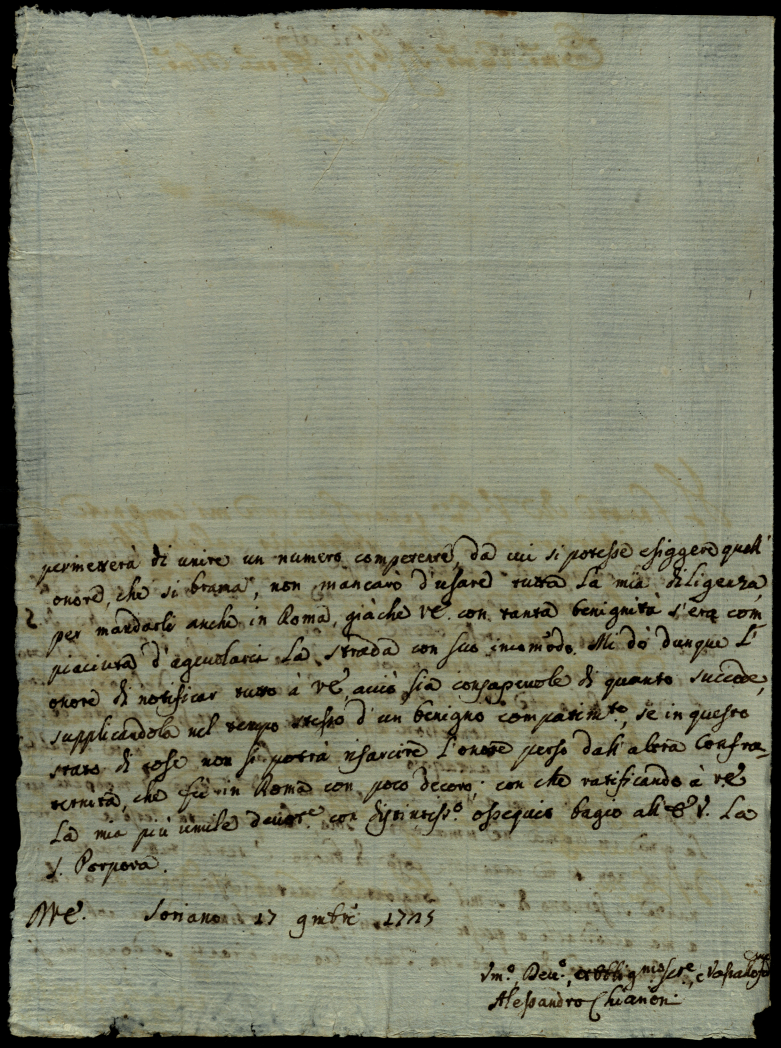 permetterà di unire un numero competente, da cui si potesse esiggere quell'
onore, che si brama, non mancarò d'usare tutta la mia diligenza,
per mandarli anche in Roma, giàche VE. con tanta benignità s'era com-
piaciuta d'agevolarci la strada con suo incomodo. Mi dò dunque l'
onore di notificar tutto à VE, acciò sia consapevole di quanto succede,
supplicandola nel tempo stesso d'un benigno compatim.to, se in questo
stato di cose non si potrà risarcire l'onore perso dall'altra Confra-
ternità, che fù in Roma con poco decoro; con che ratificando à VE
la mia più umile devoz.e con distintiss.o ossequio bagio all'E V. la
S. Porpora.
DVE. Soriano 17 9mbre 1725
Um.o, Dev.o, et Obblig.mo Ser.e, e Vassallo
Alessandro Chianoni